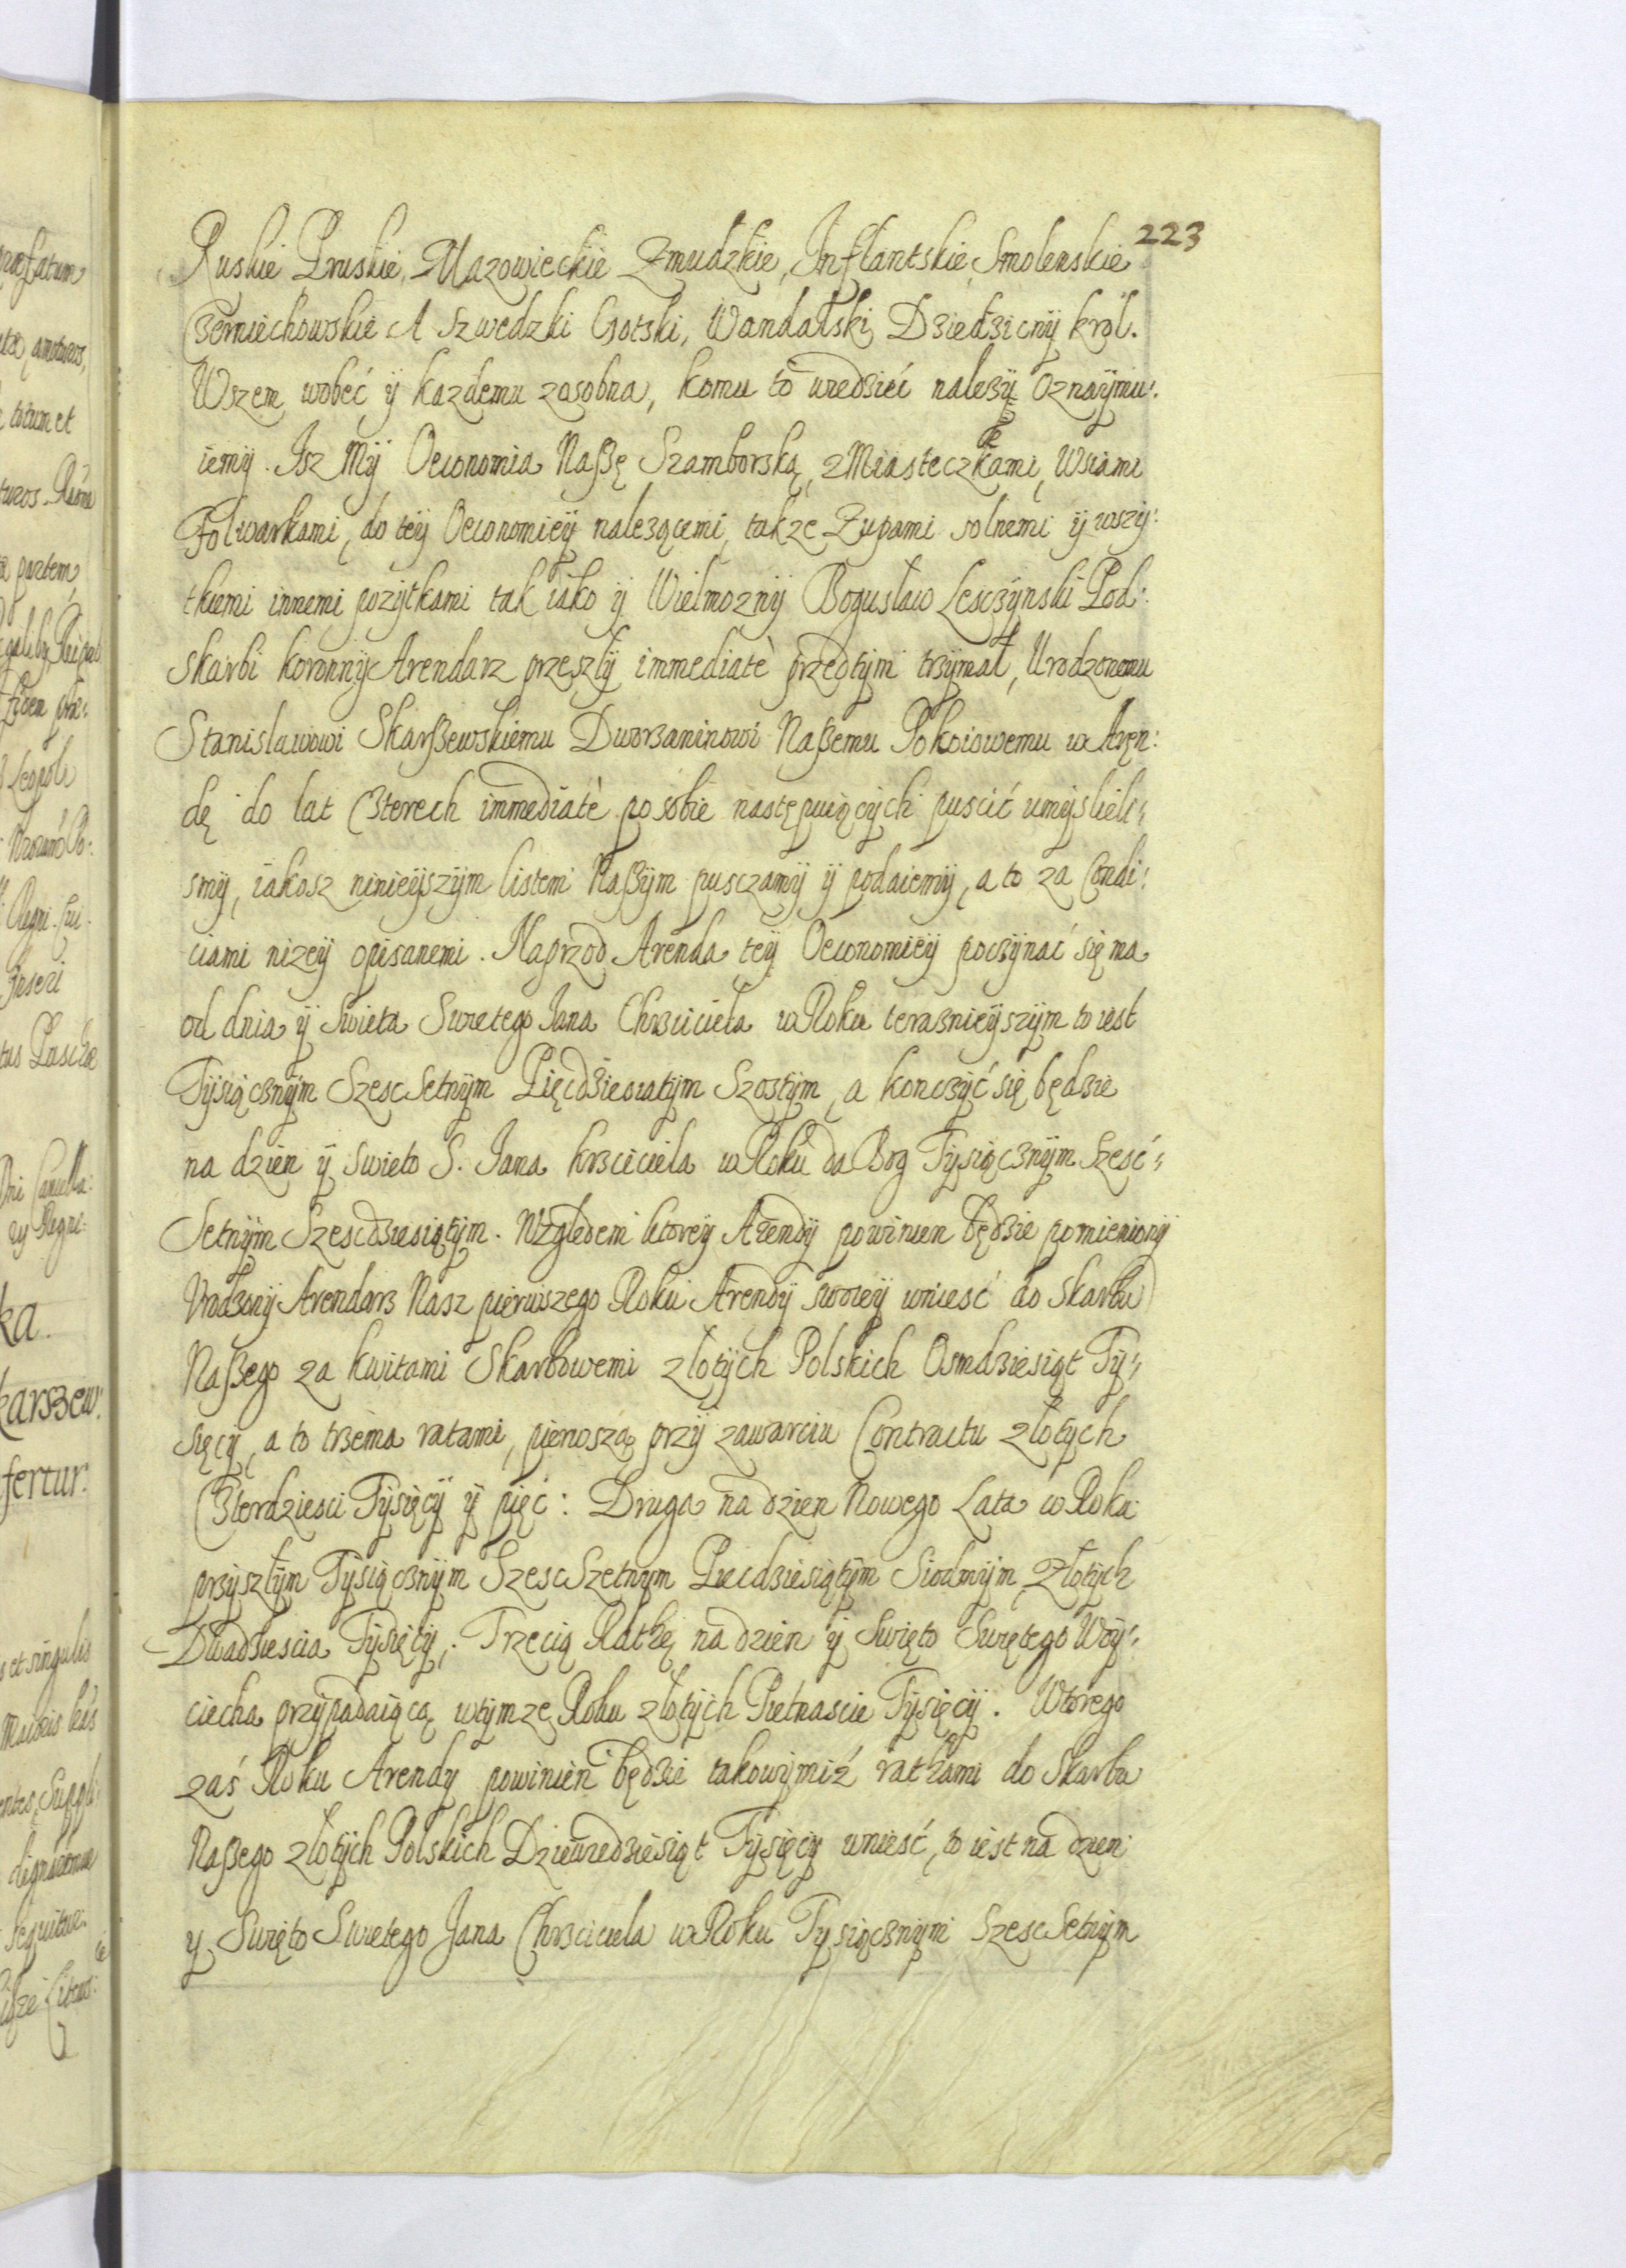 223
Ruskie Pruskie, Mazowieckie Zmudzkie, Inflantskie, Smolenskie
Czerniechowskie A Szwedzki Gotski, Wandalski, Dziedzicny krol.
Wszem wobec ÿ kazdemu zosobna, komu to wiedziec nalezÿ Oznaÿmu:
iemÿ. Isz Mÿ Oeconomia Naszę Szamborską, z Miasteczkami, Wsiami
Folwarkami, do teÿ Oeconomieÿ nalezącemi, takze Zupami solnemi ÿ wszÿ:
tkiemi innemi pozÿtkami tak iako ÿ Wielmoznÿ Bogusław Lesczÿnski Pod:
skarbi koronnÿ Arendarz przeszłÿ immediatè przedtÿm trzÿmał, Urodzonemu
Stanisławowi Skarszewskiemu Dworzaninowi Naszemu Pokoiowemu w Aręn:
dę do lat Czterech immediatè po sobie następuiącÿch puscić umÿslieli:
smÿ, iakosz ninieÿszÿm listem Naszÿm pusczamÿ ÿ podaiemÿ, a to za Condi:
ciami nizeÿ opisanemi. Naprzod Arenda teÿ Oeconomieÿ poczÿnać się ma
od dnia ÿ Swieta Swietego Jana Chrzciciela w Roku teraznieÿszÿm to iest
Tÿsiącznÿm Szescsetnÿm Pięcdziesiatÿm Szostÿm, a konczÿć się będzie
na dzien ÿ swieto S. Jana krzciciela w Roku da Bog Tÿsiącznÿm Szesć:
Setnÿm Szescdziesiątÿm. Względem ktoreÿ Arendÿ powinien będzie pomienionÿ
Urodzonÿ Arendarz Nasz pierwszego Roku Arendÿ swoieÿ wniesć do Skarbu
Naszego za kwitami Skarbowemi złotÿch Polskich Osmdziesiąt Tÿ:
sięcÿ, a to trzema ratami, pierwszą przÿ zawarciu Contractu złotÿch
Czterdziesci Tÿsięcÿ ÿ pięć: Druga na dzien Nowego Lata w Roku
przÿszłÿm Tÿsiącznÿm SzescSzetnÿm Piecdziesiątÿm Siodmÿm, Złotÿch
Dwadziescia Tÿsięcÿ, Trzecią Rathę na dzien ÿ Swięto Swiętego Woÿ:
ciecha przÿpadaiącą wtÿmze Roku złotÿch Pietnascie Tÿsięcÿ. Wtorego
zaś Roku Arendy powinien będzie takowÿmiż rathami do Skarbu
Naszego złotÿch Polskich Dziewiedziesiąt Tÿsięcÿ wniesć, to iest na dzien
y Swięto Swietego Jana Chrzciciela w Roku Tysiącznÿm Szescsetnÿm